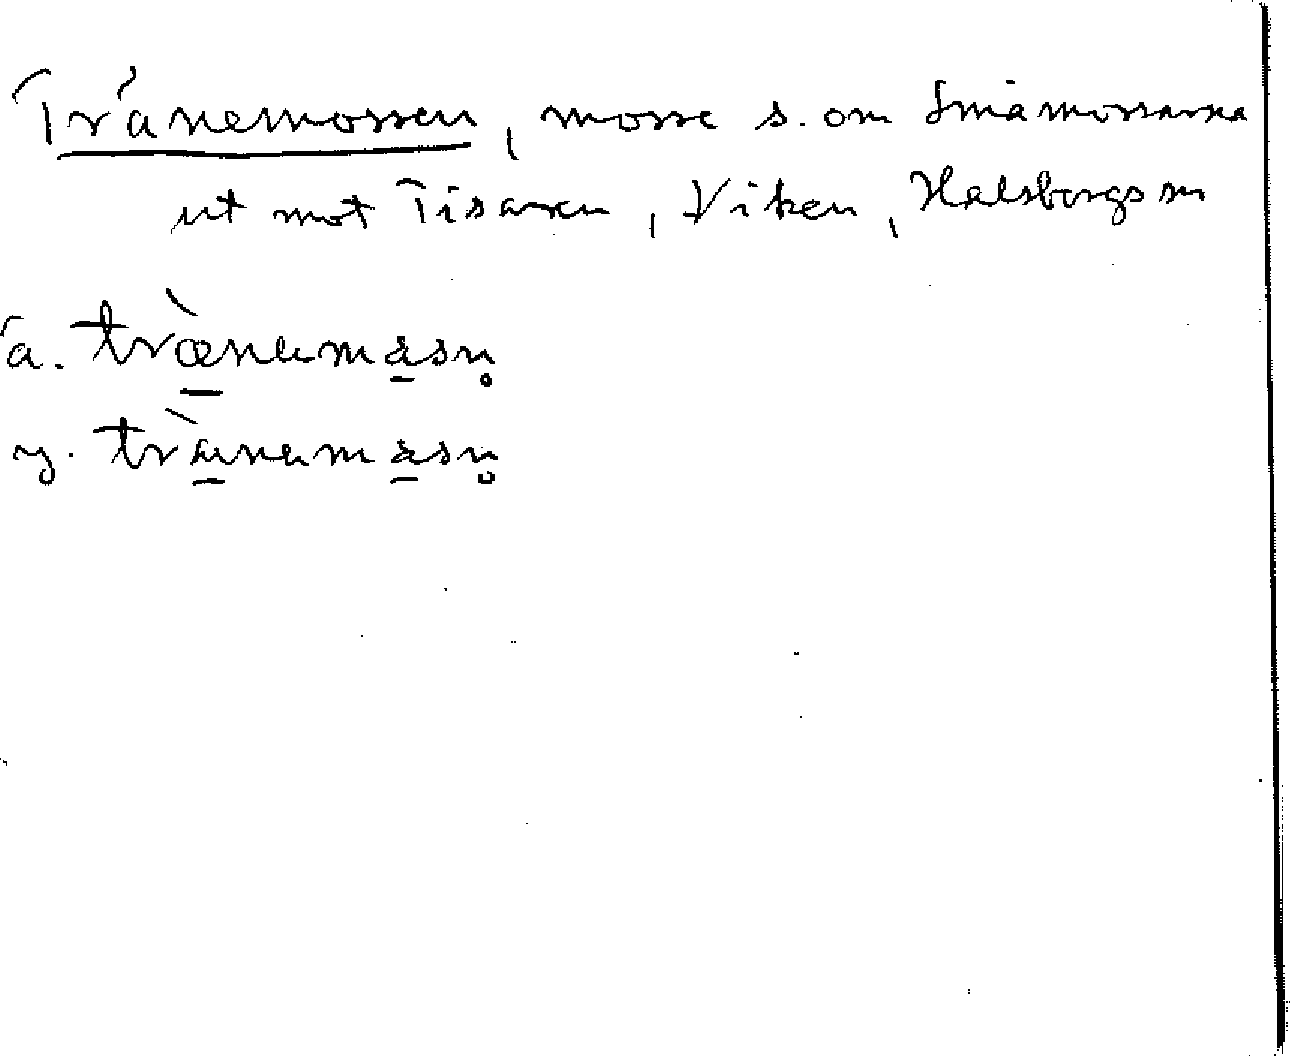 Tränemossen, mosse s. om Småmossarna
ut mot Tisaren, Viken, Halsbergs sn
ä. trænemåsn̥
y. tränemåsn̥